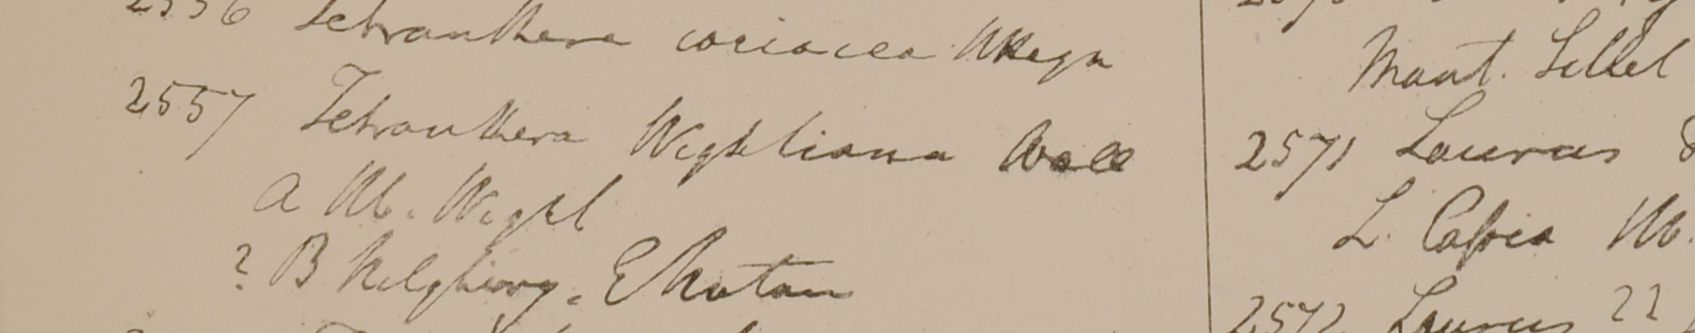 2556 Tetranthera coriacea
2557 Tetranthera Wightiana Wall
A Hb. Wight
? B Nilghirry. E Nutan
Mont. Sillet
2571 Laurus
L. Cassia Hb.
2572 Laurus 22